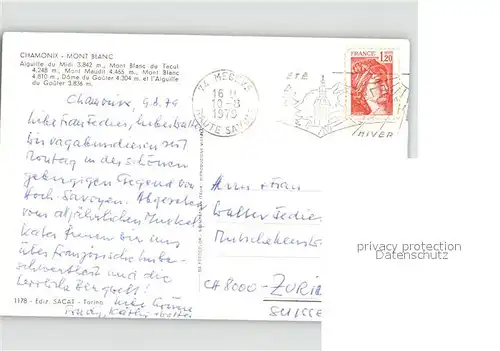 CHAMONIX - MONT BLANC
Aiguille du Midi 3.842 m., Mont Blanc de Tacul
4.248 m., Mont Maudit 4.465 m., Mont Blanc
4.810 m., Dôme du Goûter 4.304 m. et l'Aiguille
du Goûter 3.836 m.
Chamonix, 9.8.79
Liebe Frau Fedier, lieber Walter
Wir vagabundieren seit
Montag in der schönen
gebirgigen Gegend von
Hoch-Savoyen. Abgesehen
vom alljährlichen Muskel
Kater freuen wir uns
über Französische
und die
herrliche Bergwelt!
liebe Grüsse
Kathy + Walter
1178 - Ediz. SACAT - Torino
74 MEGEVE
16 H
10-8
1979
HAUTE SAVOIE
ETE
HIVER
FRANCE
1,20
Herrn + Frau
Walter Fedier
CH 8000 - ZURI
SUISSE
privacy protection
Datenschutz